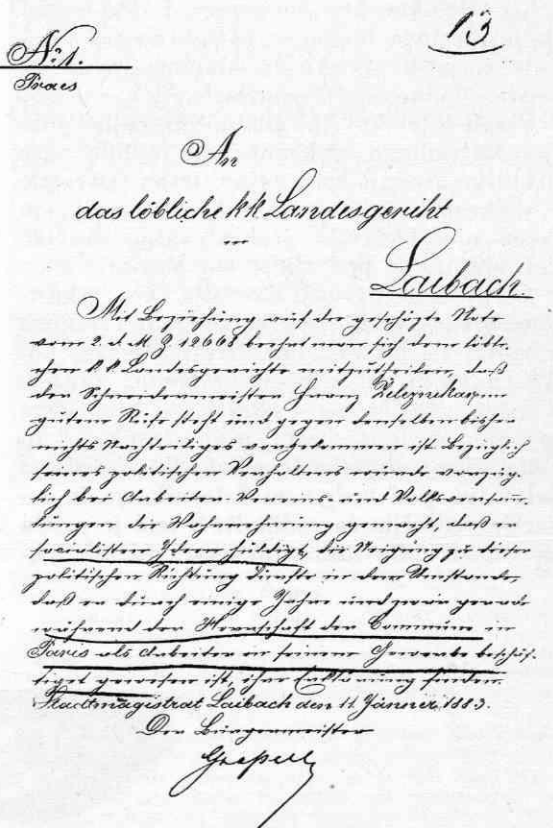 13
No 1.
Praes
An
das löbliche k k Landesgericht
in
Laibach.
Mit Beziehung auf die geschäzte Note
vom 2. d. M. Z 12668 beehrt man sich dem löbli-
chen k. k. Landesgerichte mitzutheilen, daß
der Schneidermeister Franz Zeleznikar in
gutem Rufe steht und gegen denselben bisher
nichts Nachteiliges vorgekommen ist. Bezüglich
seines politischen Verhaltens wurde vorzüg-
lich bei Arbeiter Vereins- und Volksversamm-
lungen die Wahrnehmung gemacht, daß er
socialistischen Ideen huldigt, die Neigung zu dieser
politischen Richtung dürfte in dem Umstande,
daß er durch einige Jahre und zwar gerade
während der Herrschaft der Commune in
Paris als Arbeiter in seinem Gewerbe beschäf-
tiget gewesen ist, ihre Erklärung finden.
Stadtmagistrat Laibach den 11 Jänner 1883.
Der Bürgermeister